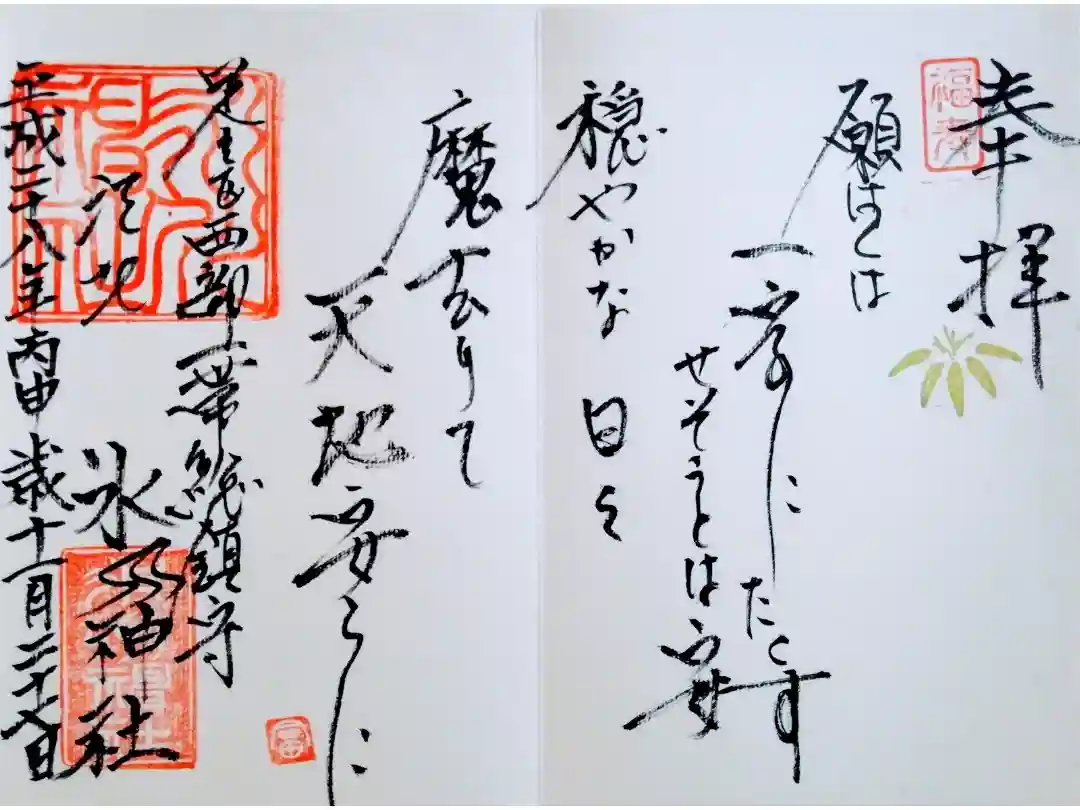 奉拝
福寿
願はくは
一字にたくす
せそうとは安
穏やかな日々
魔去りて
天地安らかに
足立区西部一帯総鎮守
江北氷川神社
平成二十八年丙申歳十一月二十日